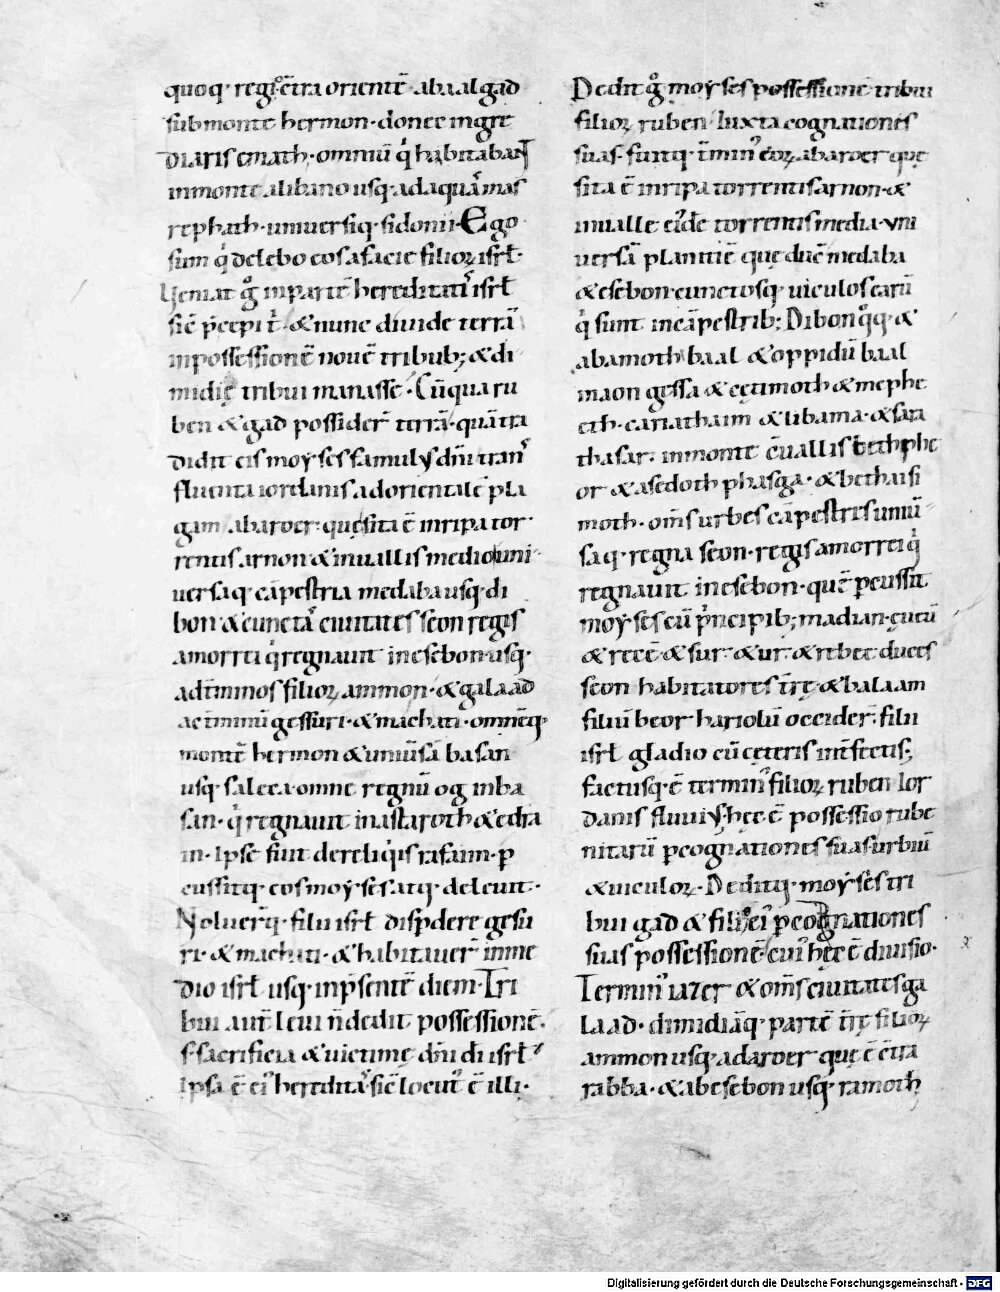 quoq· regio c̄tra orientē· abaalgad
submonte hermon· donec ingre
diaris emath· omniū q̇ habitabant
inmonte alibano usq· adaquā mas
rephath· universiq· sidonii· Ego
sum q̇ delebo eos afacie filioꝝ isrł·
Veniat g̊ inpartē hereditatis isrł
sic̄ p̄cepi t̄· & nunc divide terrā
inpossessionē novē tribub; & di
midię tribui manasse· Cū qua ru
ben & gad possider̄ terrā· quā tra
didit eis moyses famulus dn̄i trans
fluenta iordanis adorientalē pla
gam· abaroer· quę sita ē inripa tor
rentis arnon & invallis medio uni
versaq· cāpestria medaba usq· di
bon & cunctas civitates seon regis
amorrei q̇ regnavit inesebon· usq·
adt̄minos filioꝝ ammon· & galaad
ac t̄minū gessuri· & machati· omnēq·
montē hermon & univsā basan
usq· saleca· omne regnū og inba
san· q̇ regnavit inastaroth & edra
in· Ipse fuit dereliq̇is rafaim· p
cussitq· eos moyses atq· delevit·
Noluer̄q· filii isrł dispdere gesu
ri· & machati· & habitaver̄ inme
dio isrł usq· inp̄sentē diem· Tri
bui aut̄ levi n̄ dedit possessionē·
s; sacrificia & victimę dn̄i di̅ isrł
Ipsa ē ei' hereditas sic̄ locut' ē illi·
Dedit g̊ moyses possessionē tribui
filioꝝ ruben iuxta cognationes
suas· fuitq· t̄min' eoꝝ abaroer quę
sita ē inripa torrentis arnon· &
invalle eiđe torrentis media· uni
versā planitiē quę ducē medaba
& esebon· cunctosq· viculos earū
q̇ sunt incāpestrib; Dibon q̊q· &
abamoth baal & oppidū baal
maon gessa & cetimoth & mephe
eth· cariathaim & libama· & sara
thasar· inmonte cūallis bethphe
or & asedoth phasga· & bethaisi
moth· om̄s urbes cāpestris univ
saq· regna seon· regis amorrei q̇
regnavit inesebon· quē pcussit
moyses cū ṗncipib; madian· evęū
& recē & sur· & ur· & rebee duces
seon habitatores t̄rę & balaam
filiū beor hariolū occider̄· filii
isrł gladio cū ceteris int̄fectis;
factusq· ē termin' filioꝝ ruben ior
danis fluvius· hęc ē possessio rube
nitarū p cognationes suas urbiū
& viculoꝝ· Deditq· moyses tri
bui gad & filiis ei' p cognationes
suas possessionē· cui' hęc ē divisio·
Termin' iazer & om̄s civitates ga
laad· dimidiāq· partē t̄rę filioꝝ
ammon usq· adaroer quę ē c̄tra
rabba· & abesebon usq· ramoth